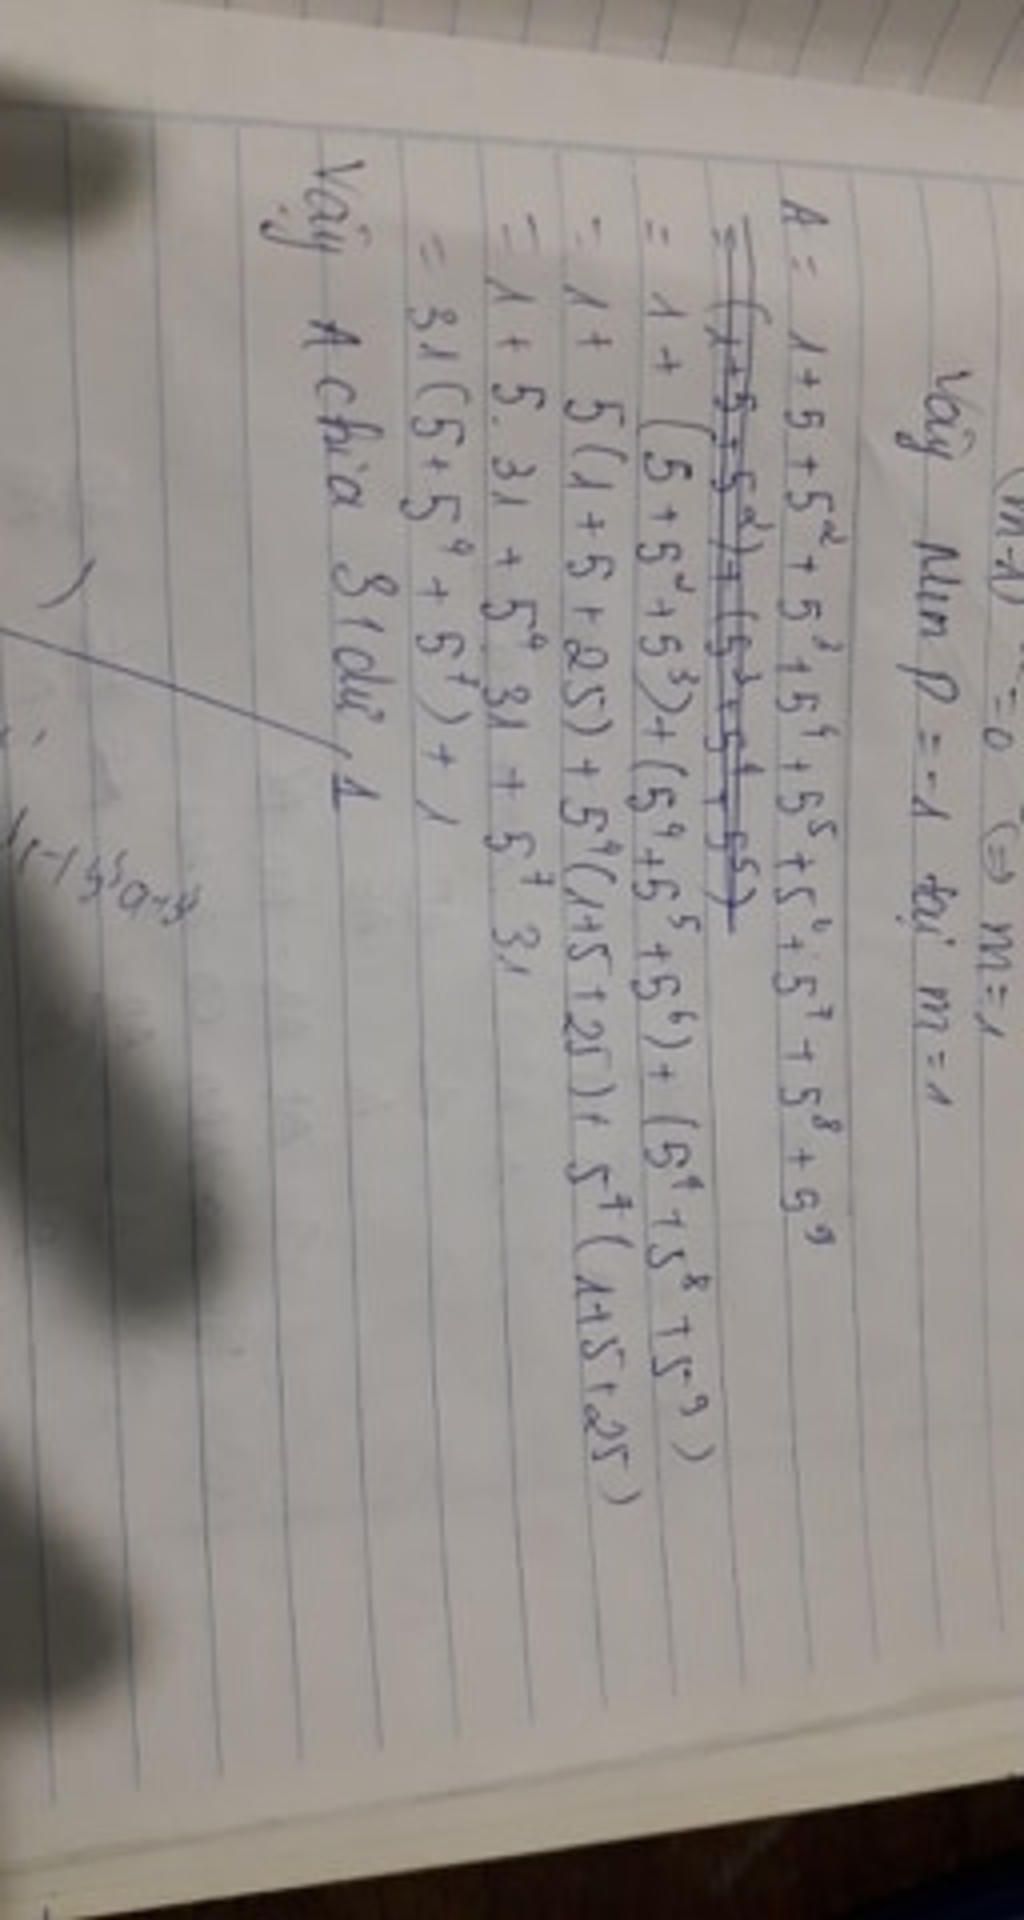 (m-1)² = 0 ⇔ m = 1
Vậy Min P = -1 tại m = 1
A = 1 + 5 + 5² + 5³ + 5⁴ + 5⁵ + 5⁶ + 5⁷ + 5⁸ + 5⁹
= (1+5+5²) + (5³+5⁴+5⁵)
= 1 + (5+5²+5³) + (5⁴+5⁵+5⁶) + (5⁷+5⁸+5⁹)
= 1 + 5(1+5+25) + 5⁴(1+5+25) + 5⁷(1+5+25)
= 1 + 5.31 + 5⁴.31 + 5⁷.31
= 31(5+5⁴+5⁷) + 1
Vậy A chia 31 dư 1